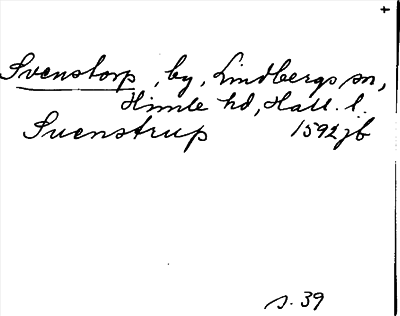 +
Svenstorp, by, Lindbergs sn,
Himle hd, Hall. l.
Svenstrup 1592 jb
s. 39